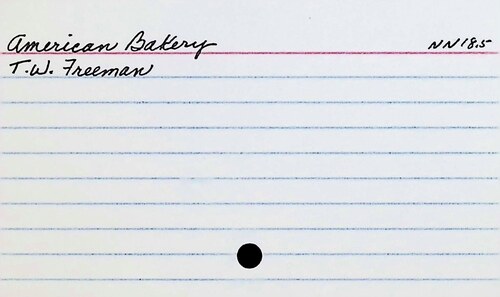 American Bakery NN18.5
T.W. Freeman